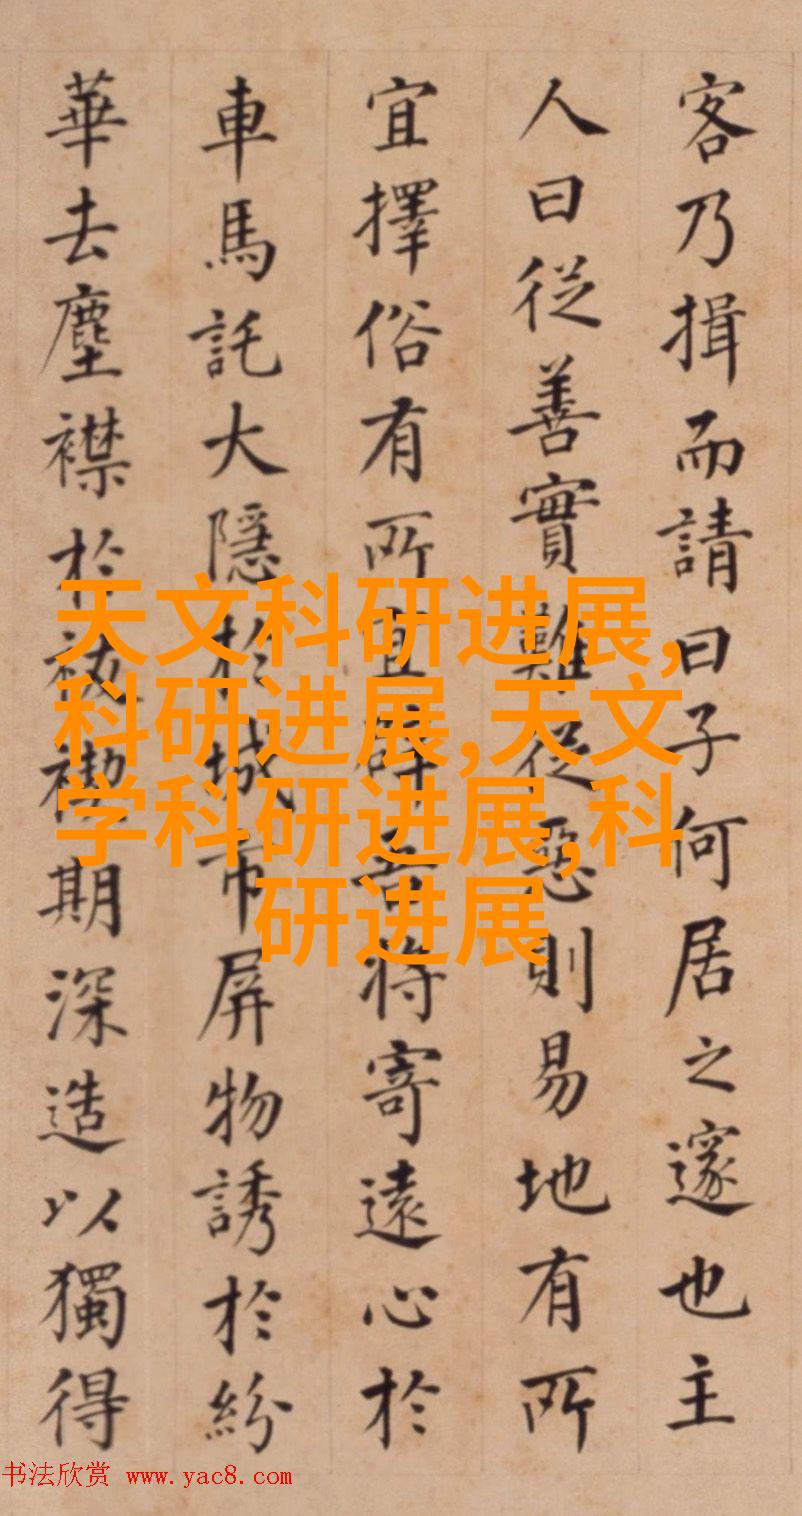 客乃揖而請曰子何居之邃也主
人曰從善實難從惡則易地有所
宜擇俗有所宜辟吾將寄遠心於
車馬託大隱於城市屏物誘於紛
華去塵襟於袚禊期深造以獨得
天文科研进展,
科研进展,天文
学科研进展,科
研进展
书法欣赏 www.yac8.com